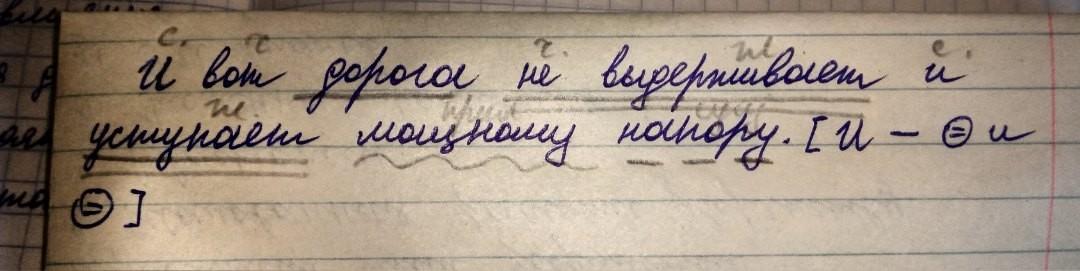 с. ч ч. гл с.
И вот дорога не выдерживает и
гл. прил сущ
уступает мощному напору. [И – ⊜ и
⊜]